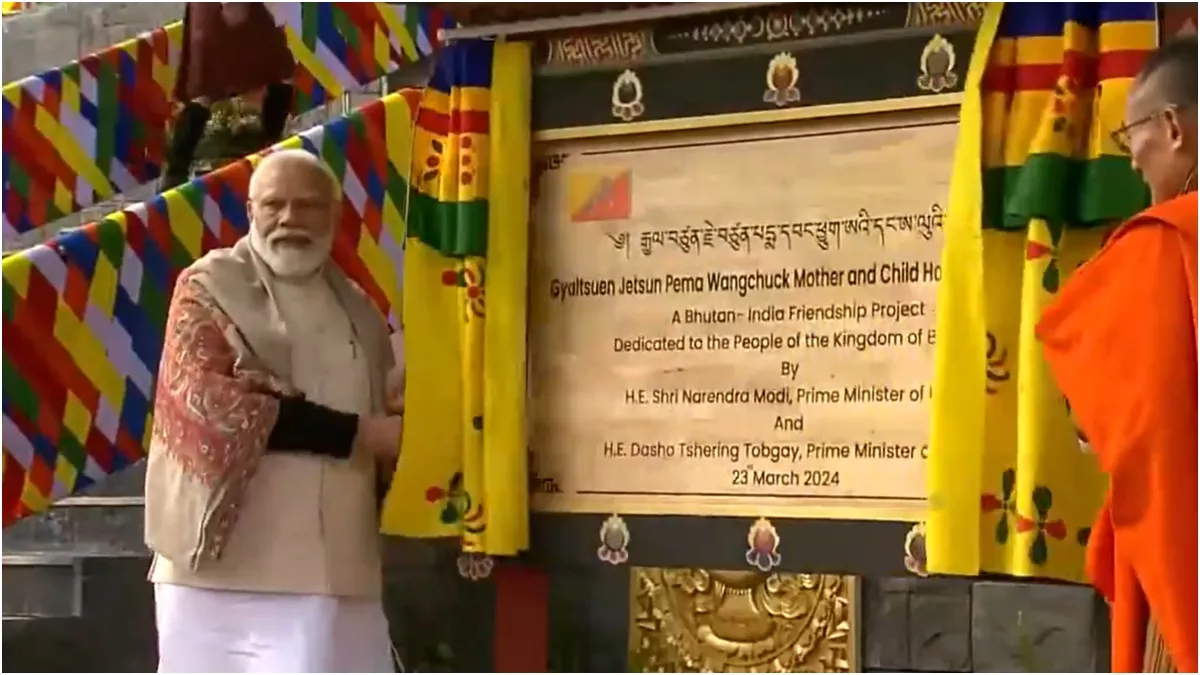 ༄། རྒྱལ་བཙུན་རྗེ་བཙུན་པདྨ་དབང་ཕྱུག་ཨའི་དང་ཨ་ལུའི་
Gyaltsuen Jetsun Pema Wangchuck Mother and Child Ho
A Bhutan- India Friendship Project
Dedicated to the People of the Kingdom of B
By
H.E. Shri Narendra Modi, Prime Minister of I
And
H.E. Dasho Tshering Tobgay, Prime Minister o
23rd March 2024